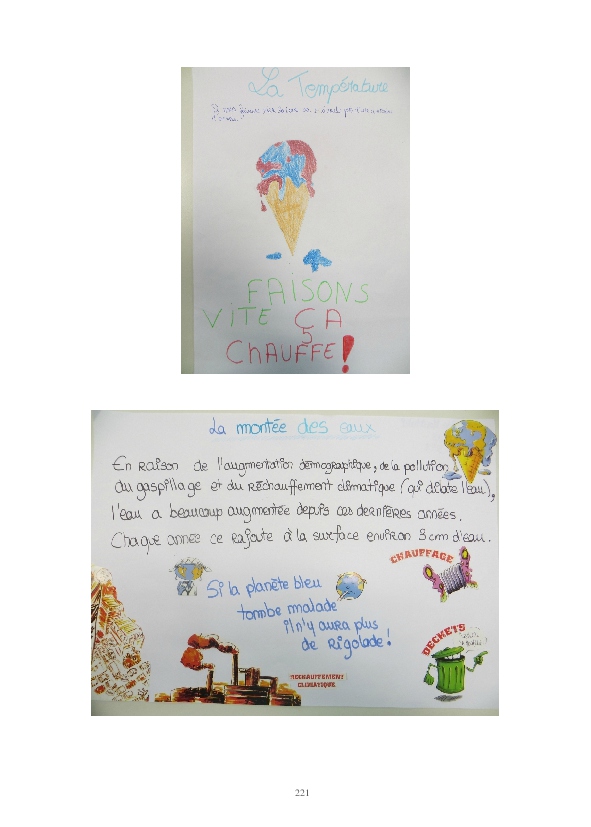 La Température
FAISONS
VITE ÇA
ChAUFFE!
La montée des eaux
En Raison de l'augmentation démographique, de la pollution
du gaspillage et du Réchauffement climatique (qui dilate l'eau),
l'eau a beaucoup augmentée depuis ces dernières années.
Chaque année ce rajoute à la surface environ 3 cm d'eau.
CHAUFFAGE
Si la planète bleu
tombe malade
il n'y aura plus
de Rigolade!
DECHETS
RECHAUFFEMENT
CLIMATIQUE
221